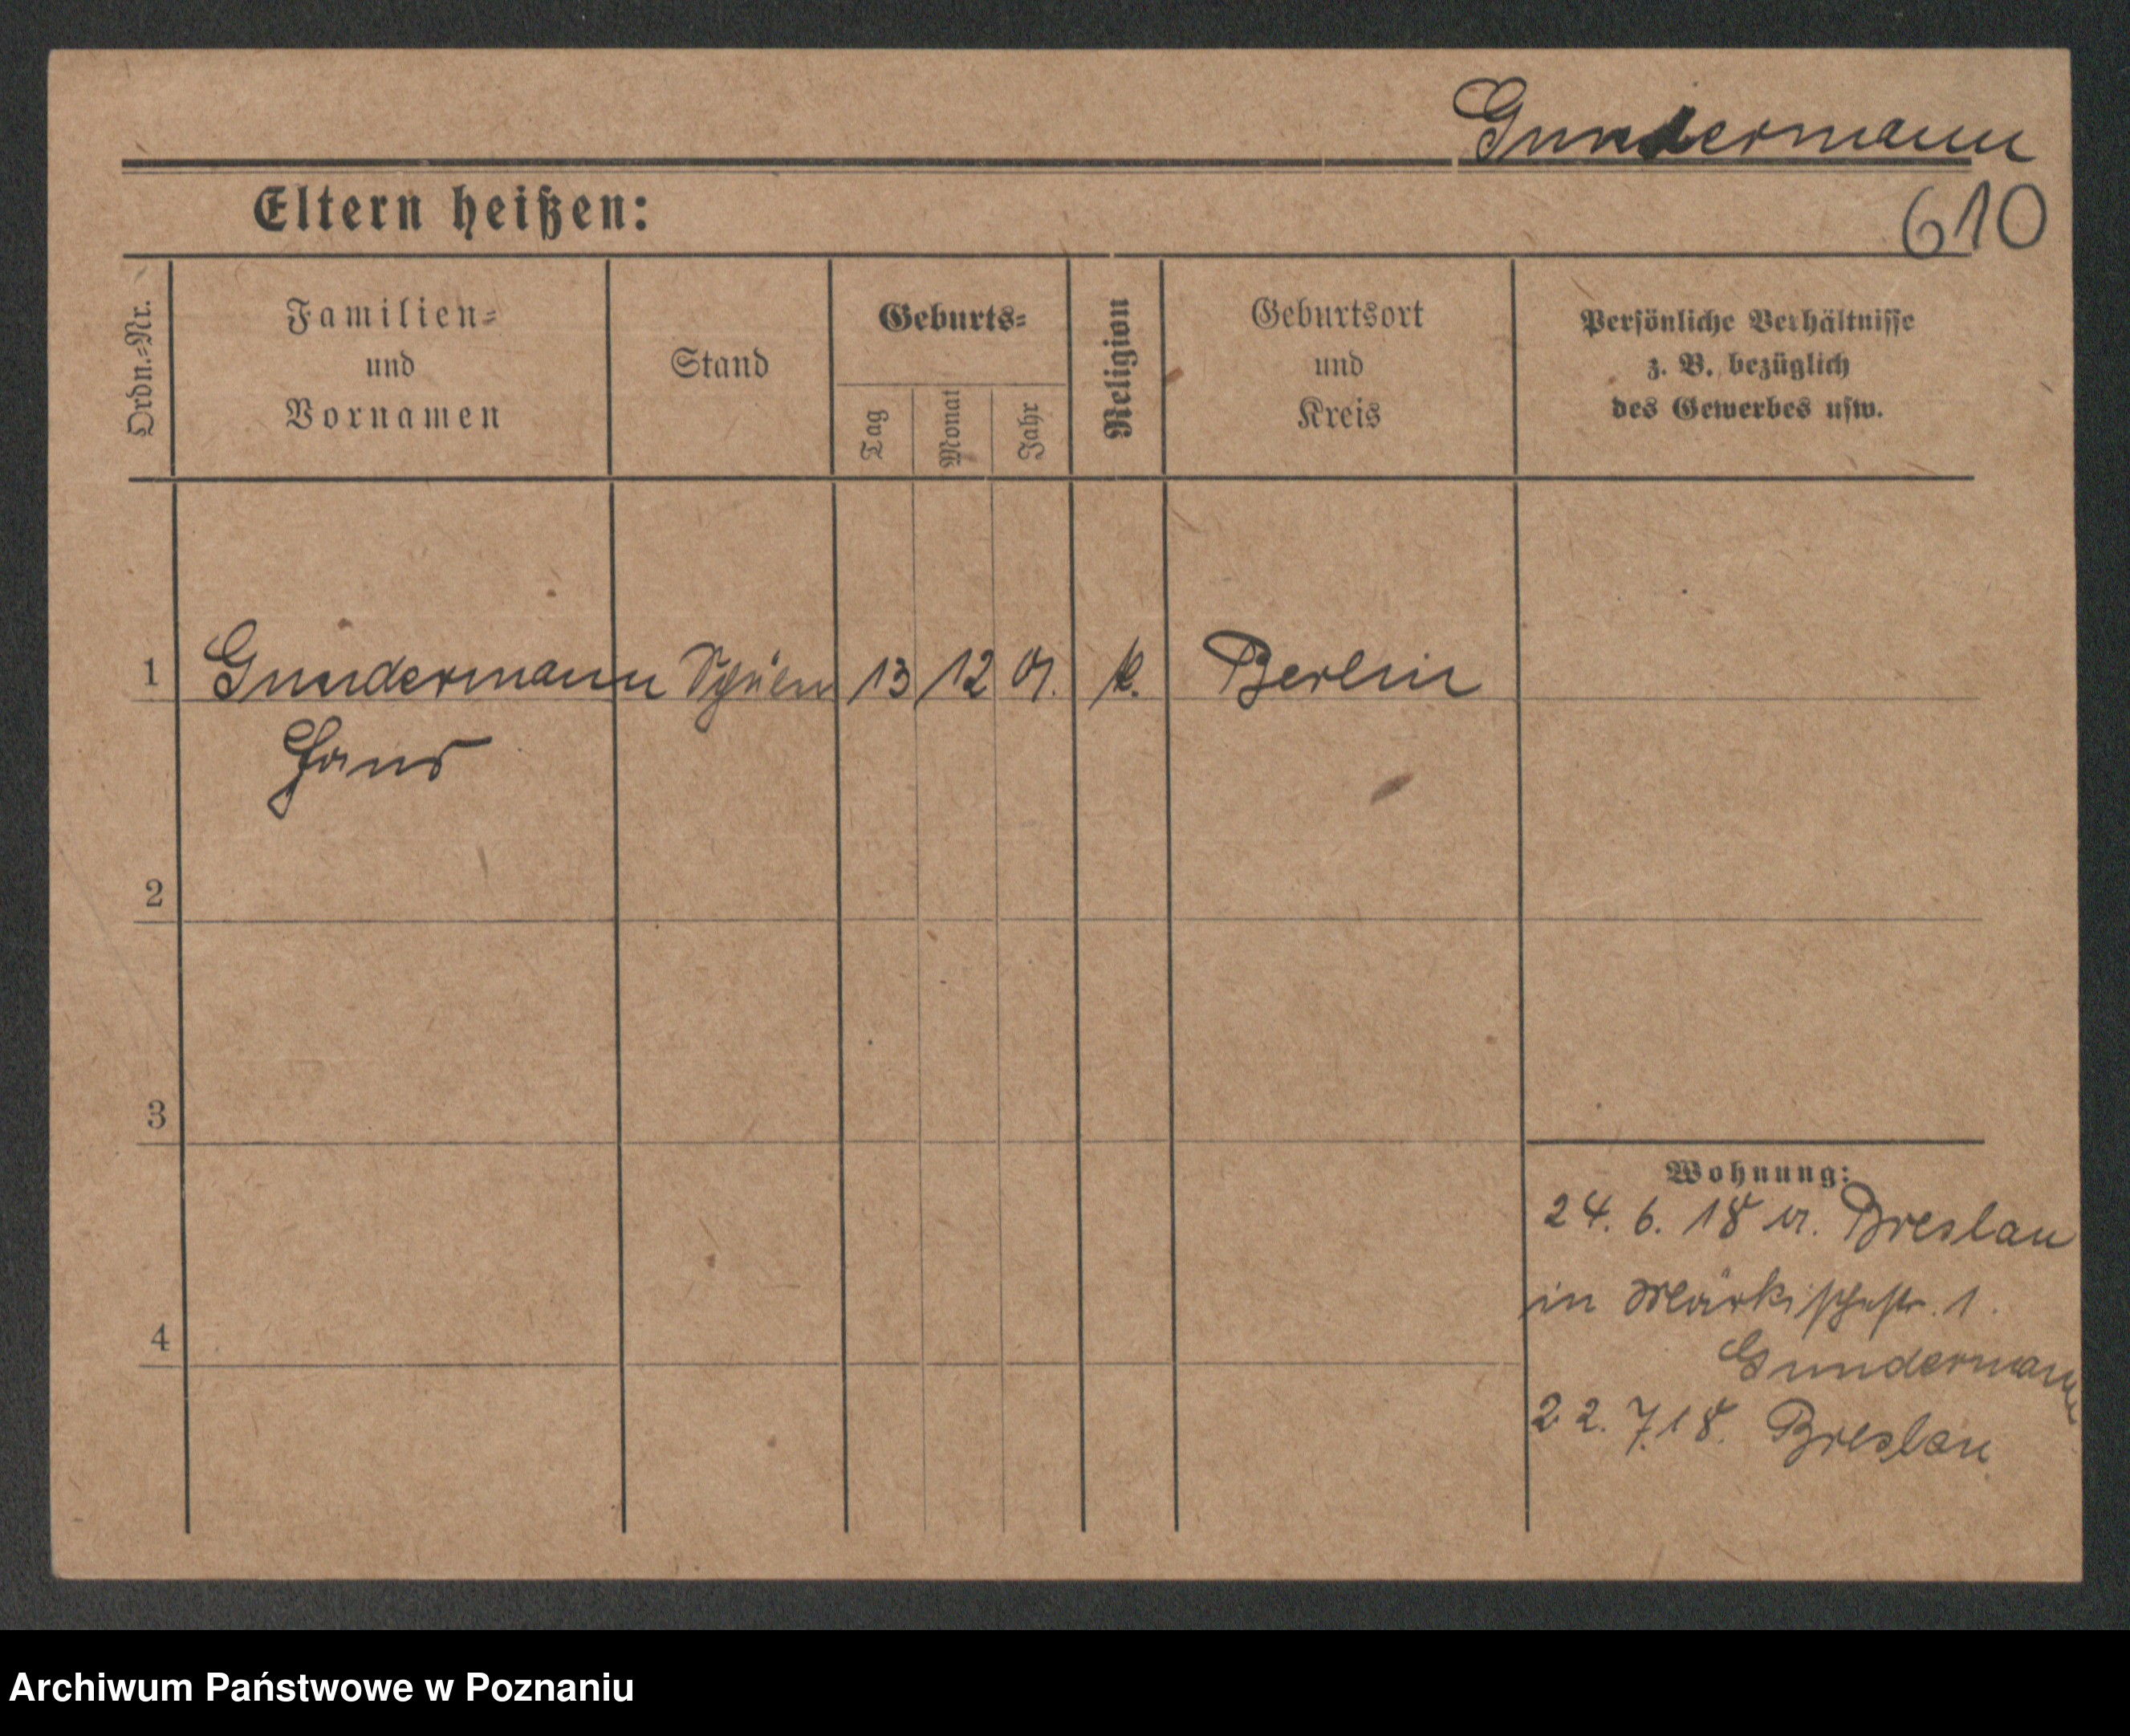 Gundermann
610
Eltern heißen:
Ordn.=Nr.
Familien=
und
Vornamen
Stand
Geburts=
Tag
Monat
Jahr
Religion
Geburtsort
und
Kreis
Persönliche Verhältnisse
z. B. bezüglich
des Gewerbes usw.
1 Gundermann Schüler 13 12 01. k. Berlin
Hans
2
3
4
Wohnung:
24. 6. 18 v. Breslau
in Märkischestr. 1.
Gundermann
22. 7. 18. Breslau
Archiwum Państwowe w Poznaniu